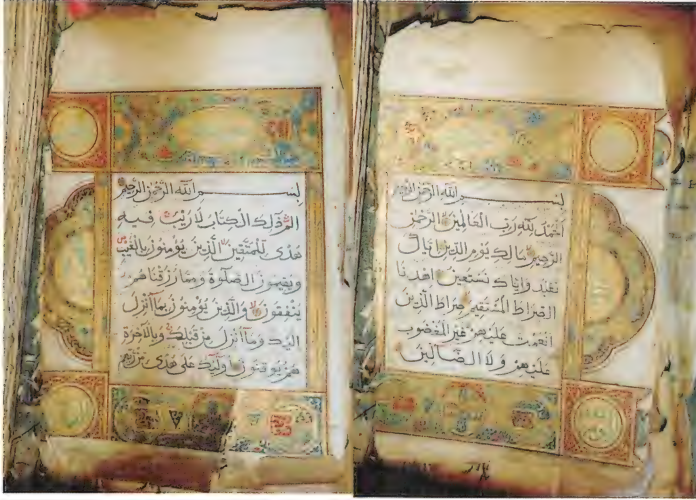 بِسْمِ اللهِ الرَّحْمٰنِ الرَّحِيمِ
اَلْحَمْدُ لِلّٰهِ رَبِّ الْعَالَمِينَ الرَّحْمٰنِ
الرَّحِيمِ مَالِكِ يَوْمِ الدِّينِ اِيَّاكَ
نَعْبُدُ وَاِيَّاكَ نَسْتَعِينُ اهْدِنَا
الصِّرَاطَ الْمُسْتَقِيمَ صِرَاطَ الَّذِينَ
اَنْعَمْتَ عَلَيْهِمْ غَيْرِ الْمَغْضُوبِ
عَلَيْهِمْ وَلَا الضَّالِّينَ
بِسْمِ اللهِ الرَّحْمٰنِ الرَّحِيمِ
الم ذٰلِكَ الْكِتَابُ لَا رَيْبَ فِيهِ
هُدًى لِلْمُتَّقِينَ الَّذِينَ يُؤْمِنُونَ بِالْغَيْبِ
وَيُقِيمُونَ الصَّلٰوةَ وَمِمَّا رَزَقْنَاهُمْ
يُنْفِقُونَ وَالَّذِينَ يُؤْمِنُونَ بِمَا اُنْزِلَ
اِلَيْكَ وَمَا اُنْزِلَ مِنْ قَبْلِكَ وَبِالْاٰخِرَةِ
هُمْ يُوقِنُونَ اُولٰئِكَ عَلٰى هُدًى مِنْ رَبِّهِمْ